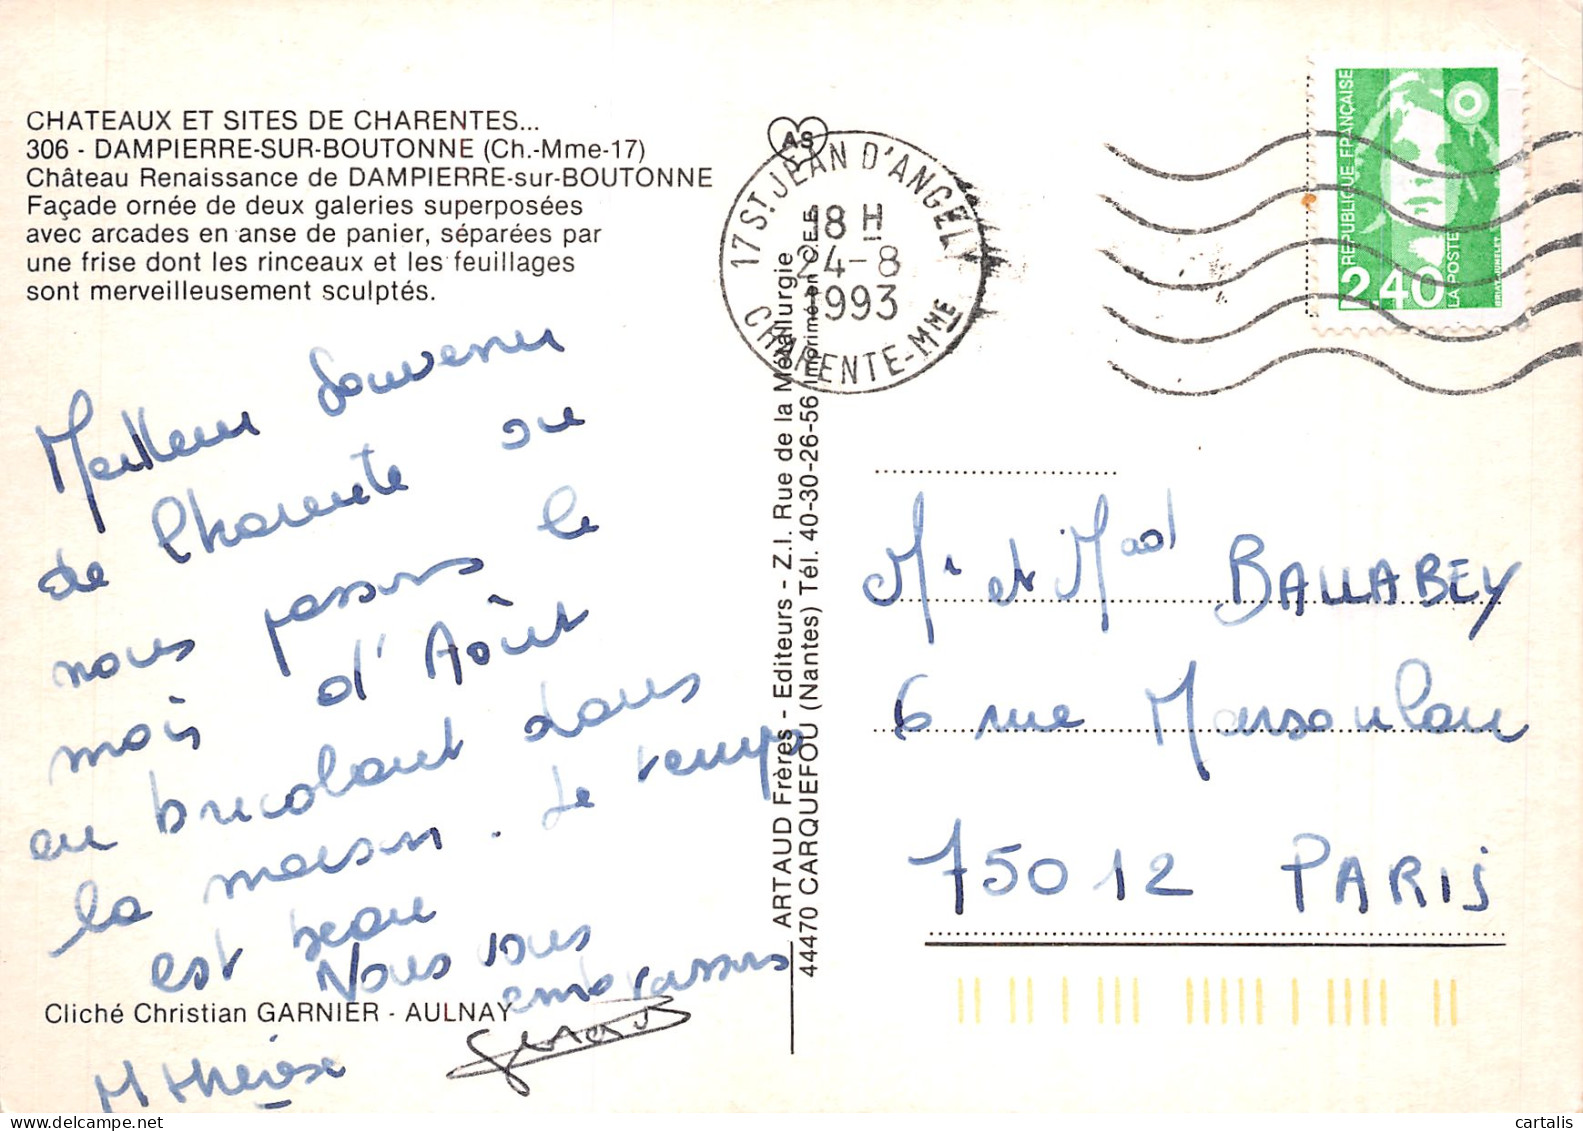 CHATEAUX ET SITES DE CHARENTES...
306 - DAMPIERRE-SUR-BOUTONNE (Ch.-Mme-17)
Château Renaissance de DAMPIERRE-sur-BOUTONNE
Façade ornée de deux galeries superposées
avec arcades en anse de panier, séparées par
une frise dont les rinceaux et les feuillages
sont merveilleusement sculptés.
Meilleur souvenir
de Charente ou
nous passons le
mois d'Août
en bricolant dans
la maison. Le temps
est beau
Nous vous
embrassons
M Thérèse
Gérard
Cliché Christian GARNIER - AULNAY
AS
ARTAUD Frères - Editeurs - Z.I. Rue de la Métallurgie
44470 CARQUEFOU (Nantes) Tél. 40-30-26-56 Imprimé en C.E.E.
17 ST JEAN D'ANGELY
18 H
24-8
1993
CHARENTE-MME
REPUBLIQUE FRANÇAISE
2,40
LA POSTE
Mr et Mad BALLABEY
6 rue Marsoulan
75012 PARIS
cartalis